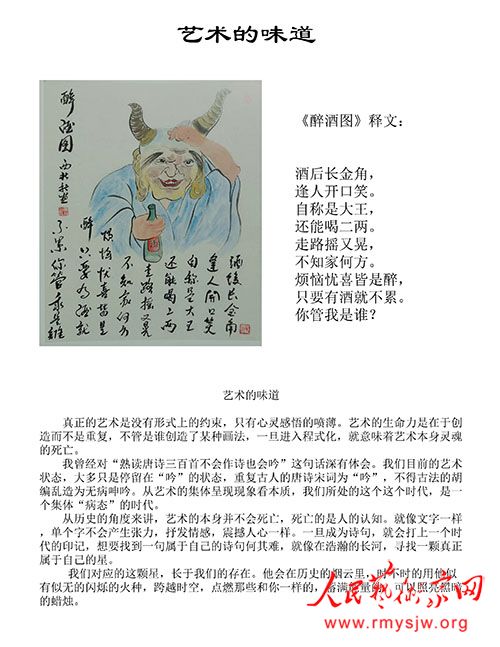 艺术的味道
醉酒图
酒后长金角
逢人开口笑
自称是大王
还能喝二两
走路摇又晃
不知家何方
烦恼忧喜皆是
醉
只要有酒就
不累你管我是谁
《醉酒图》释文：
酒后长金角，
逢人开口笑。
自称是大王，
还能喝二两。
走路摇又晃，
不知家何方。
烦恼忧喜皆是醉，
只要有酒就不累。
你管我是谁？
艺术的味道
真正的艺术是没有形式上的约束，只有心灵感悟的喷薄。艺术的生命力是在于创
造而不是重复，不管是谁创造了某种画法，一旦进入程式化，就意味着艺术本身灵魂
的死亡。
我曾经对“熟读唐诗三百首不会作诗也会吟”这句话深有体会。我们目前的艺术
状态，大多只是停留在“吟”的状态，重复古人的唐诗宋词为“吟”，不得古法的胡
编乱造为无病呻吟。从艺术的集体呈现现象看本质，我们所处的这个这个时代，是一
个集体“病态”的时代。
从历史的角度来讲，艺术的本身并不会死亡，死亡的是人的认知。就像文字一样
，单个字不会产生张力，抒发情感，震撼人心一样。一旦成为诗句，就会打上一个时
代的印记，想要找到一句属于自己的诗句何其难，就像在浩瀚的长河，寻找一颗真正
属于自己的星。
我们对应的这颗星，长于我们的存在。他会在历史的烟云里，时不时的用他似
有似无的闪烁的火种，跨越时空，点燃那些和你一样的，蓄满能量的，可以照亮黑暗
的蜡烛。
人民艺术家网
www.rmysjw.org